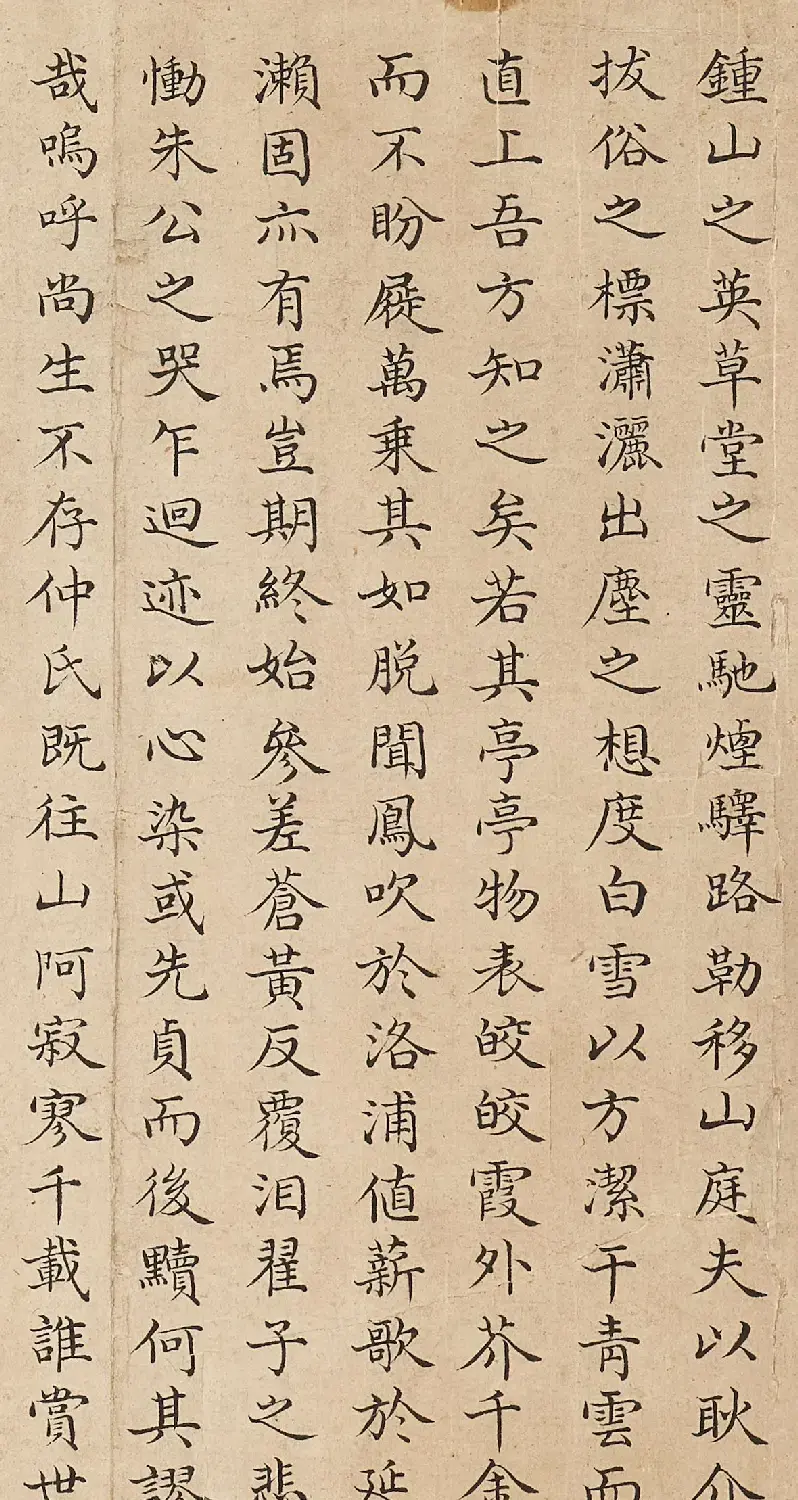 鍾山之英草堂之靈馳煙驛路勒移山庭夫以耿介
拔俗之標瀟灑出塵之想度白雪以方潔干青雲而
直上吾方知之矣若其亭亭物表皎皎霞外芥千金
而不盼屣萬乗其如脱聞鳳吹於洛浦值薪歌於延
瀨固亦有焉豈期終始參差蒼黃反覆泪翟子之悲
慟朱公之哭乍迴迹以心染或先貞而後黷何其謬
哉嗚呼尚生不存仲氏既往山阿寂寥千載誰賞世